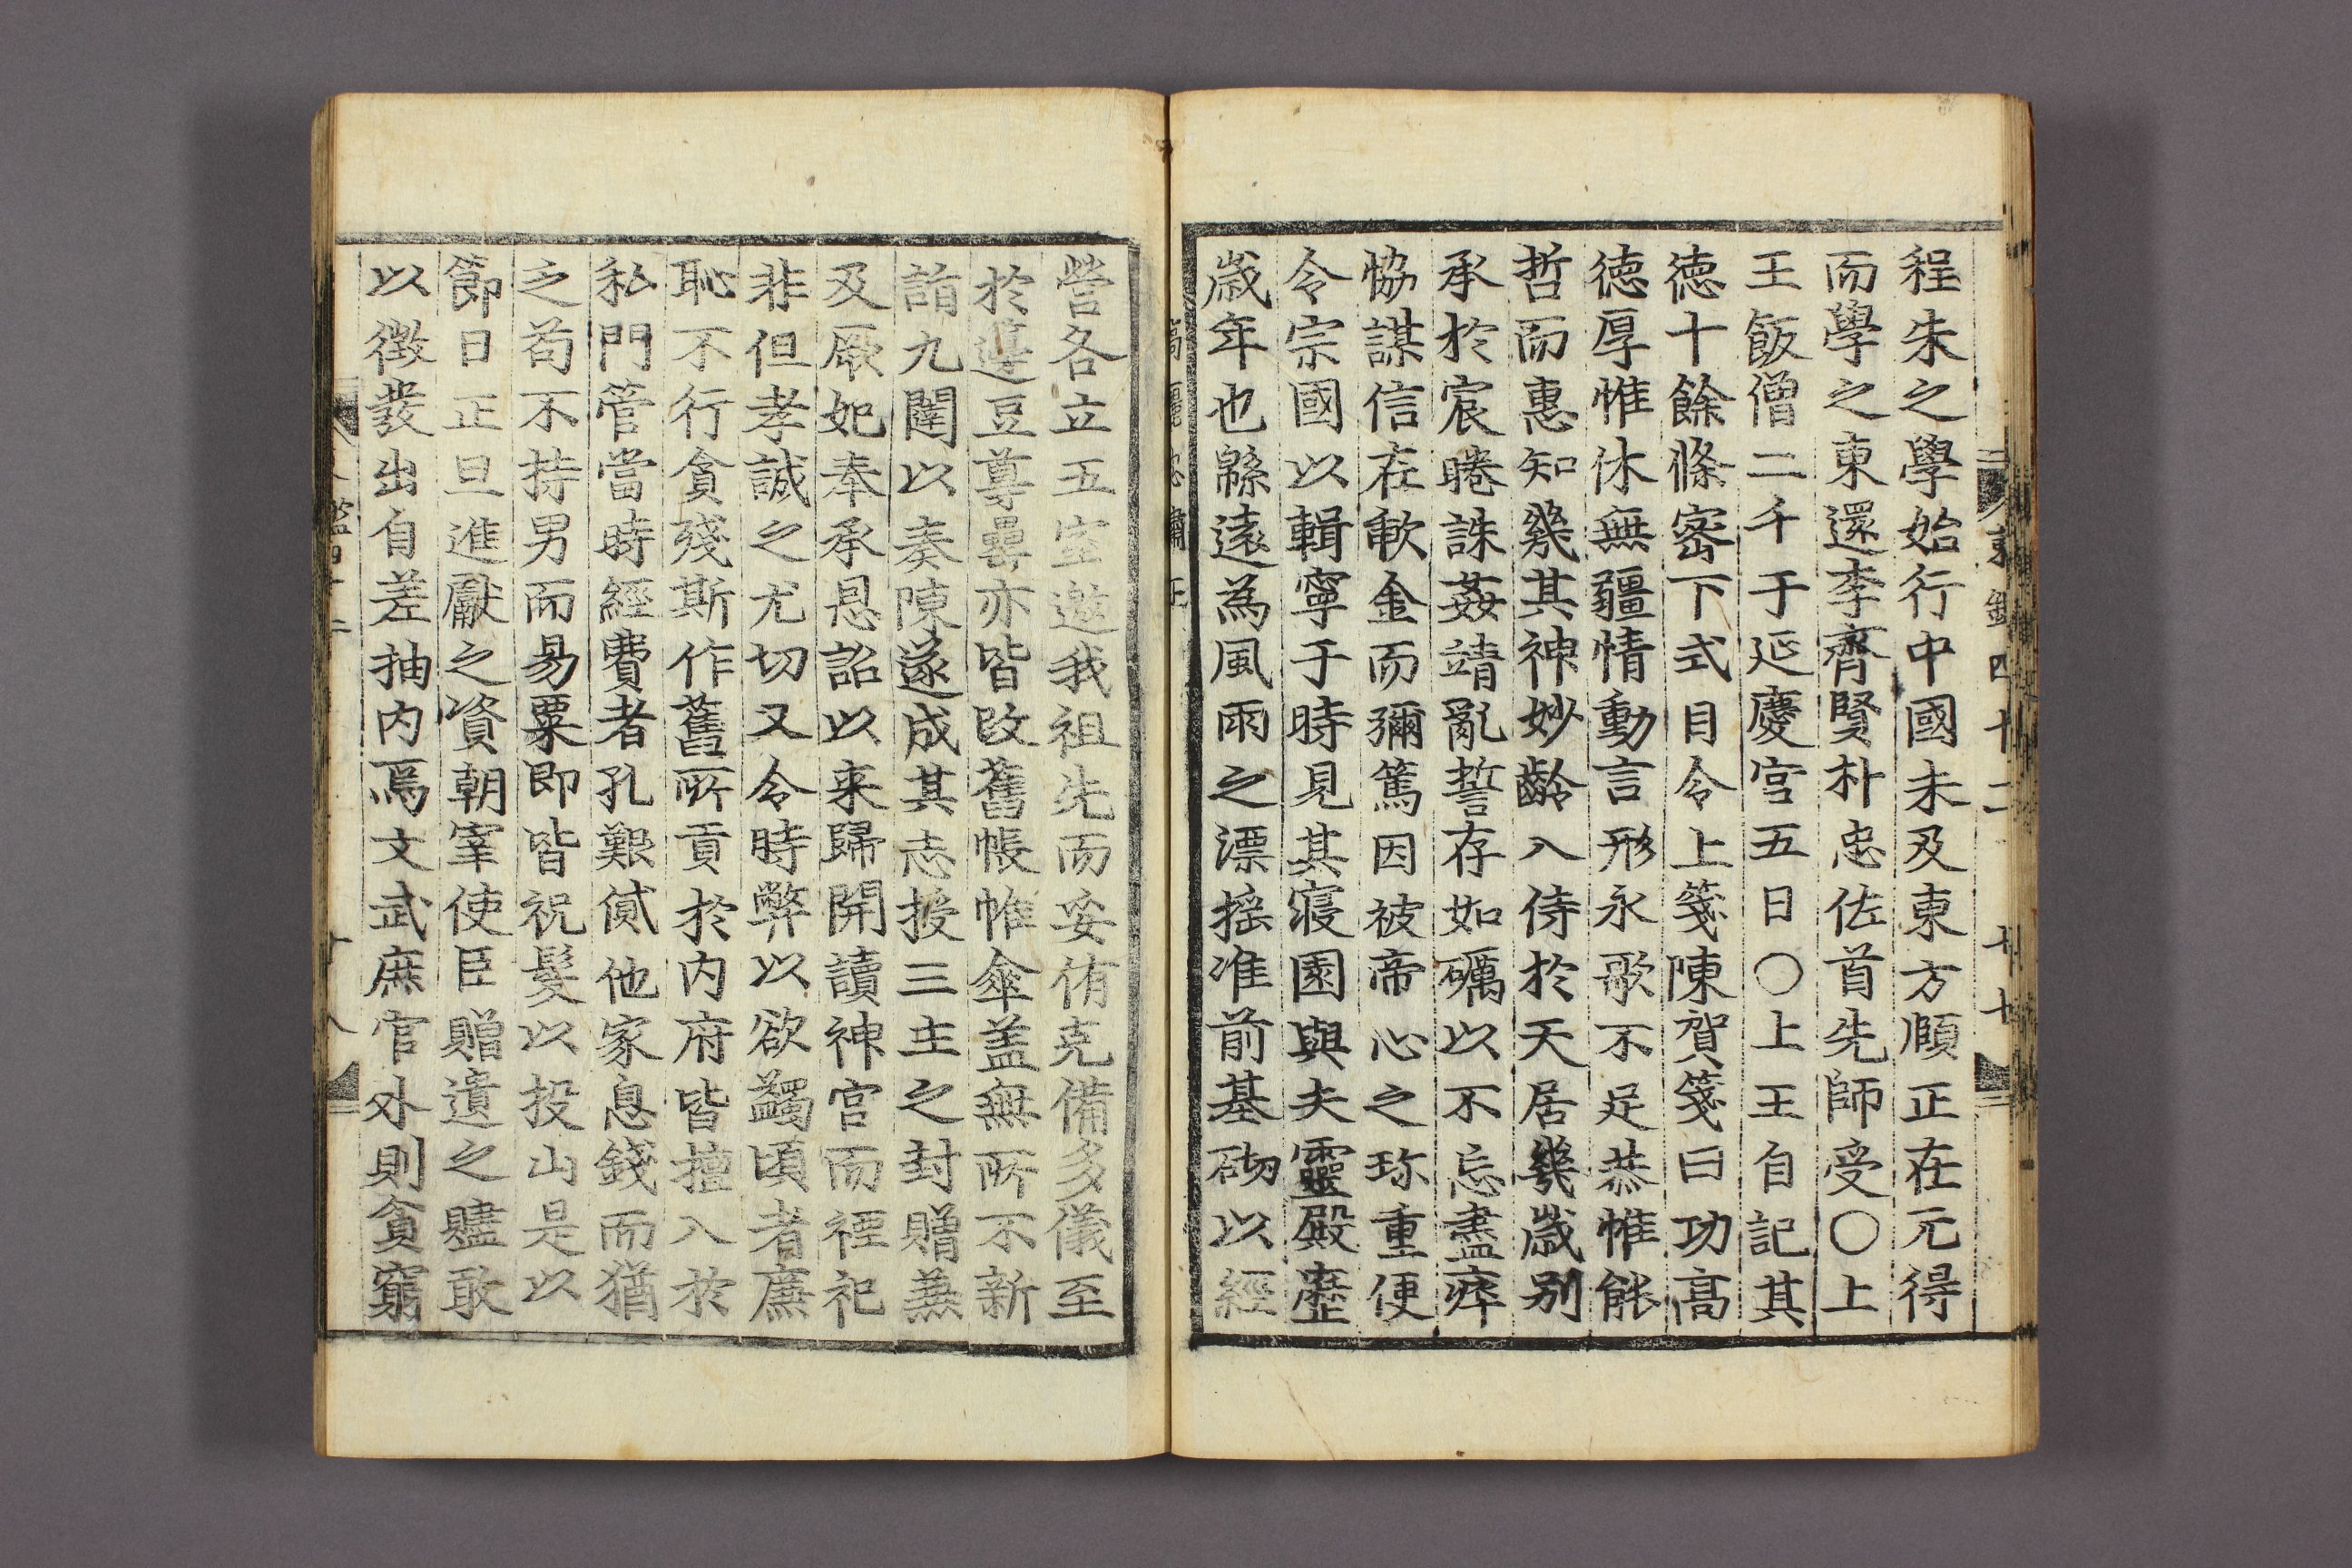 程朱之學始行中國未及東方頤正在元得
而學之東還李齊賢朴忠佐首先師受〇上
王飯僧二千于延慶宮五日〇上王自記其
德十餘條密下式目令上箋陳賀箋曰功高
德厚惟休無疆情動言形永歌不足恭惟䏻
哲而惠知幾其神妙齡入侍於天居幾歲别
承於宸睠誅姦靖亂誓存如礪以不忘盡瘁
恊謀信在㪉金而彌篤因被帝心之珎重便
令宗國以輯寧于時見其寢園與夫靈殿歷
歲年也緜遠為風雨之漂揺准前基砌以經
營各立五室邀我祖先而妥侑克備多儀至
於籩豆尊罍亦皆改舊帳帷傘盖無所不新
詣九闥以奏陳遂成其志授三主之封贈兼
及厥妃奉承恩詔以来歸開讀神宮而禋祀
非但孝誠之尤切又令時弊以欲蠲頃者廉
恥不行貪殘斯作舊所貢於内府皆擅入於
私門管當時經費者孔艱貸他家息錢而猶
之苟不持男而易粟即皆祝髮以投山是以
節日正旦進獻之資朝宰使臣贈遺之贐敢
以徵發出自差抽内焉文武庶官外則貪窮
東鑑四十二 十七
高麗忠肅王
鑑四十二 十八